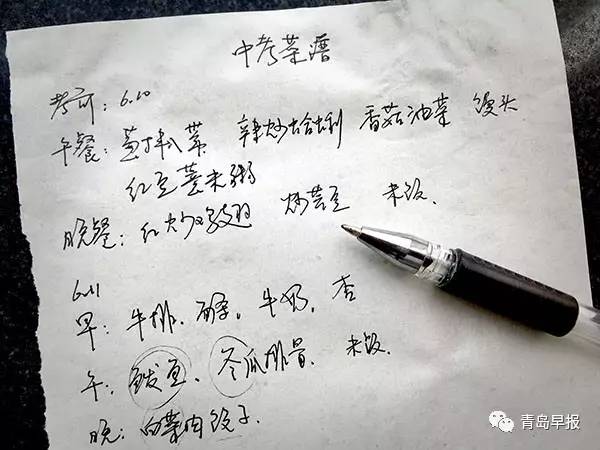 中考菜谱
考前：6.10
午餐： 辣炒蛤蜊 香菇油菜 馒头
红豆薏米粥
晚餐：红烧鸡翅 炒芸豆 米饭.
6.11
早：牛排. 牛奶, 杏
午：鲅鱼、冬瓜排骨. 米饭.
晚：白菜肉饺子.
青岛早报